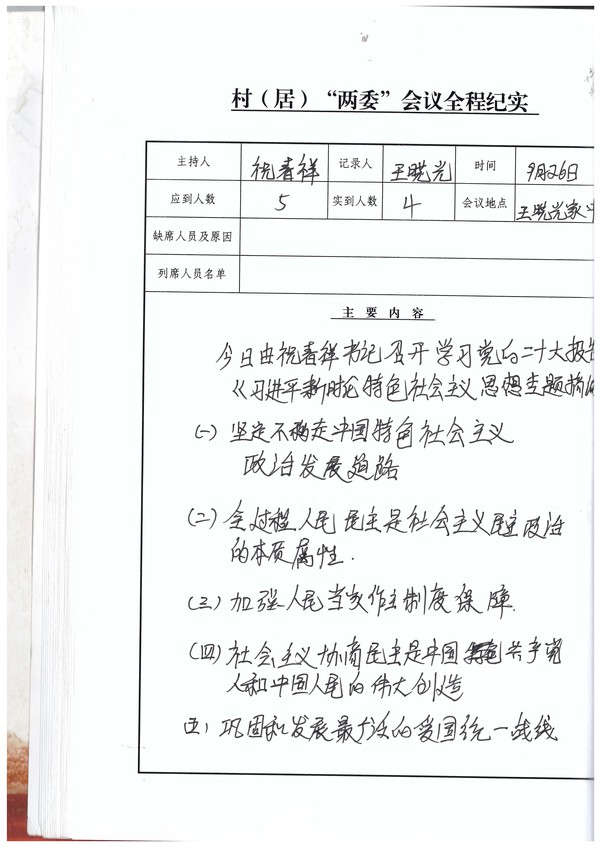 村（居）“两委”会议全程纪实
主持人 祝春祥 记录人 王晓光 时间 9月26日
应到人数 5 实到人数 4 会议地点 王晓光家
缺席人员及原因
列席人员名单
主要内容
今日由祝春祥书记召开学习党的二十大报告
《习近平新时代特色社会主义思想专题摘
(一) 坚定不移走中国特色社会主义
政治发展道路
(二) 全过程人民民主是社会主义民主政治
的本质属性.
(三) 加强人民当家作主制度保障.
(四) 社会主义协商民主是中国共产党
人和中国人民的伟大创造
五) 巩固和发展最广泛的爱国统一战线